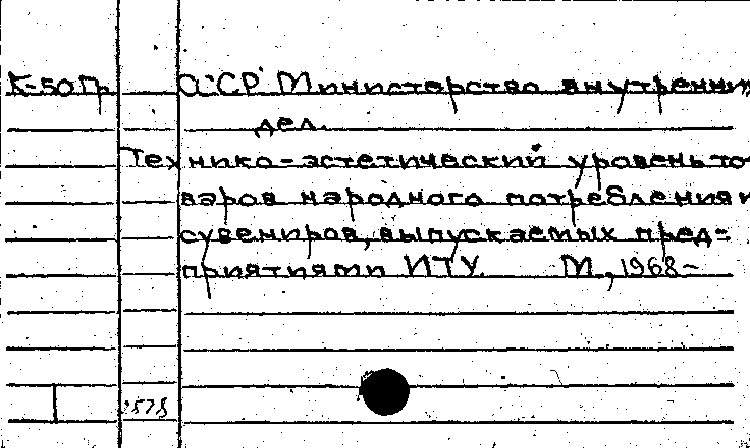 К-50 Гр. СССР Министерство внутренних
дел.
Технико-эстетический уровень то-
варов народного потребления и
сувениров, выпускаемых пред-
приятиями ИТУ. М., 1968-